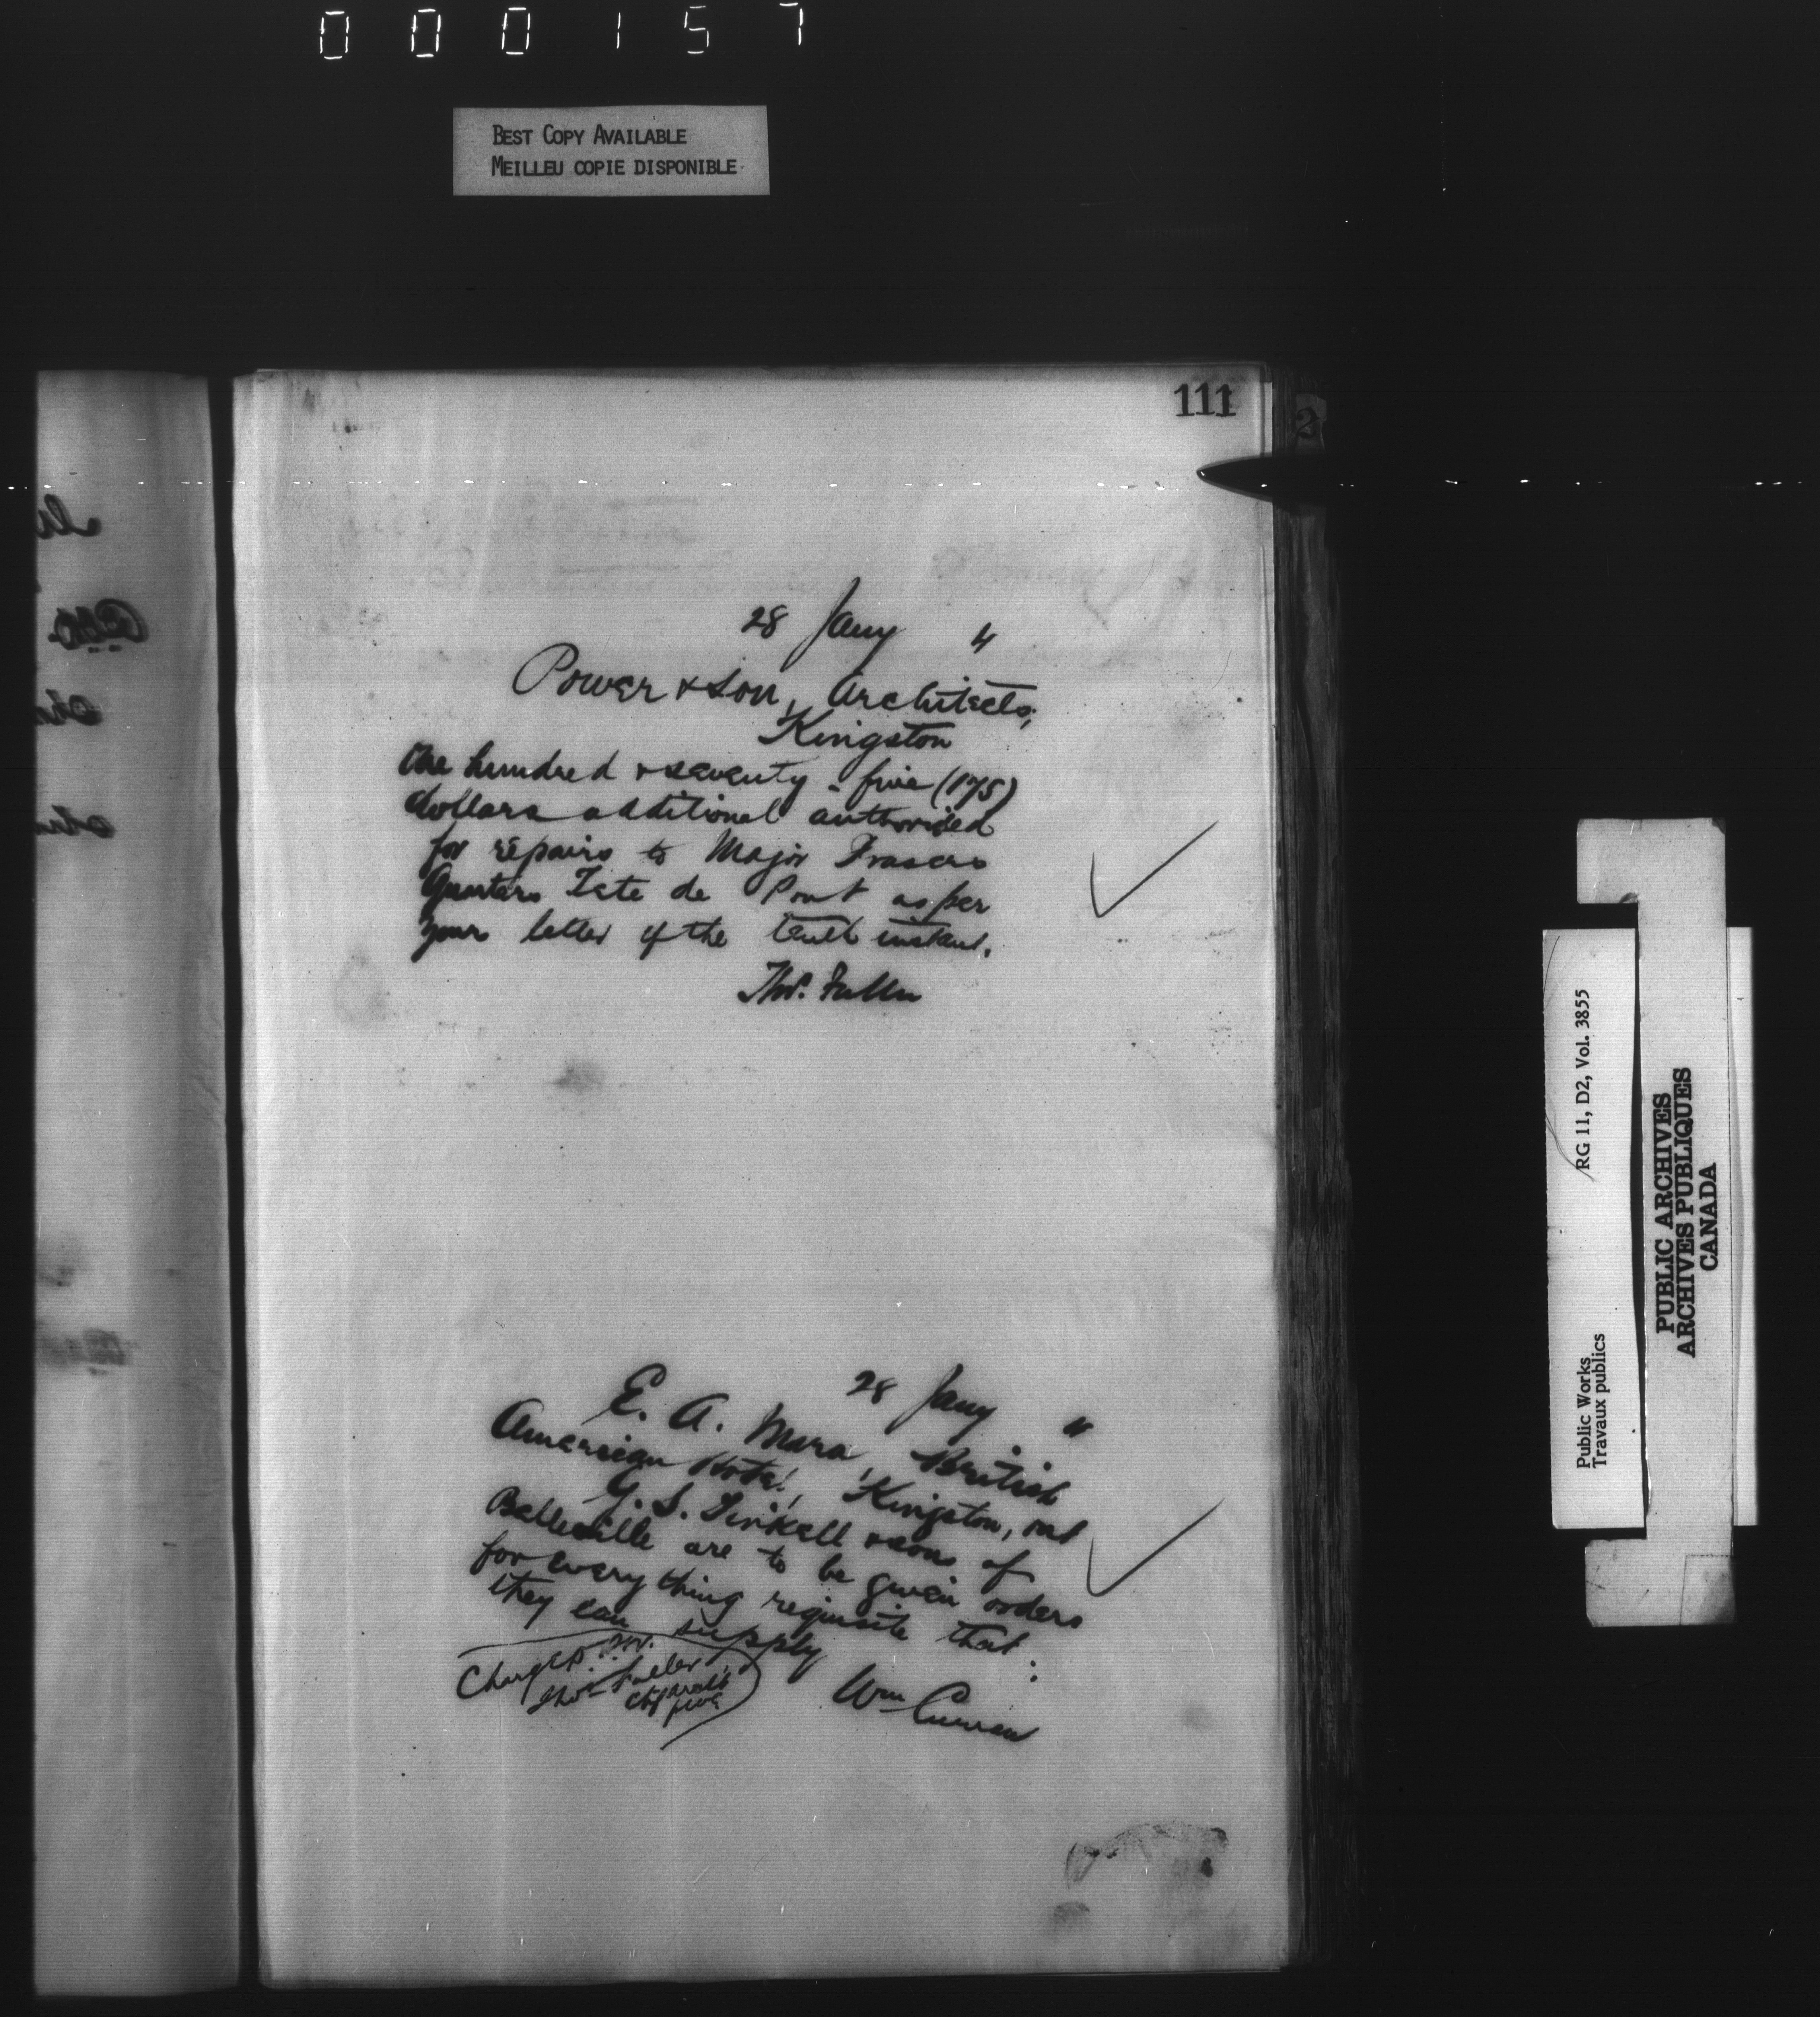 000157
BEST COPY AVAILABLE
MEILLEU COPIE DISPONIBLE
111
2
28 Jany "
Power & Son, Architects,
Kingston
One hundred & seventy-five (175)
dollars additional authorized
for repairs to Major Frasers
Quarters Tete de Pont as per
your letter of the tenth instant.
Thos. Fuller
28 Jany "
E. A. Mara, British
American Hotel, Kingston, and
G. S. Tickell & sons of
Belleville are to be given orders
for every thing requisite that
they can supply
Wm Curran
Charge P.W.
Thos Fuller
Chf Archt
RG 11, D2, Vol. 3855
Public Works
Travaux publics
PUBLIC ARCHIVES
ARCHIVES PUBLIQUES
CANADA